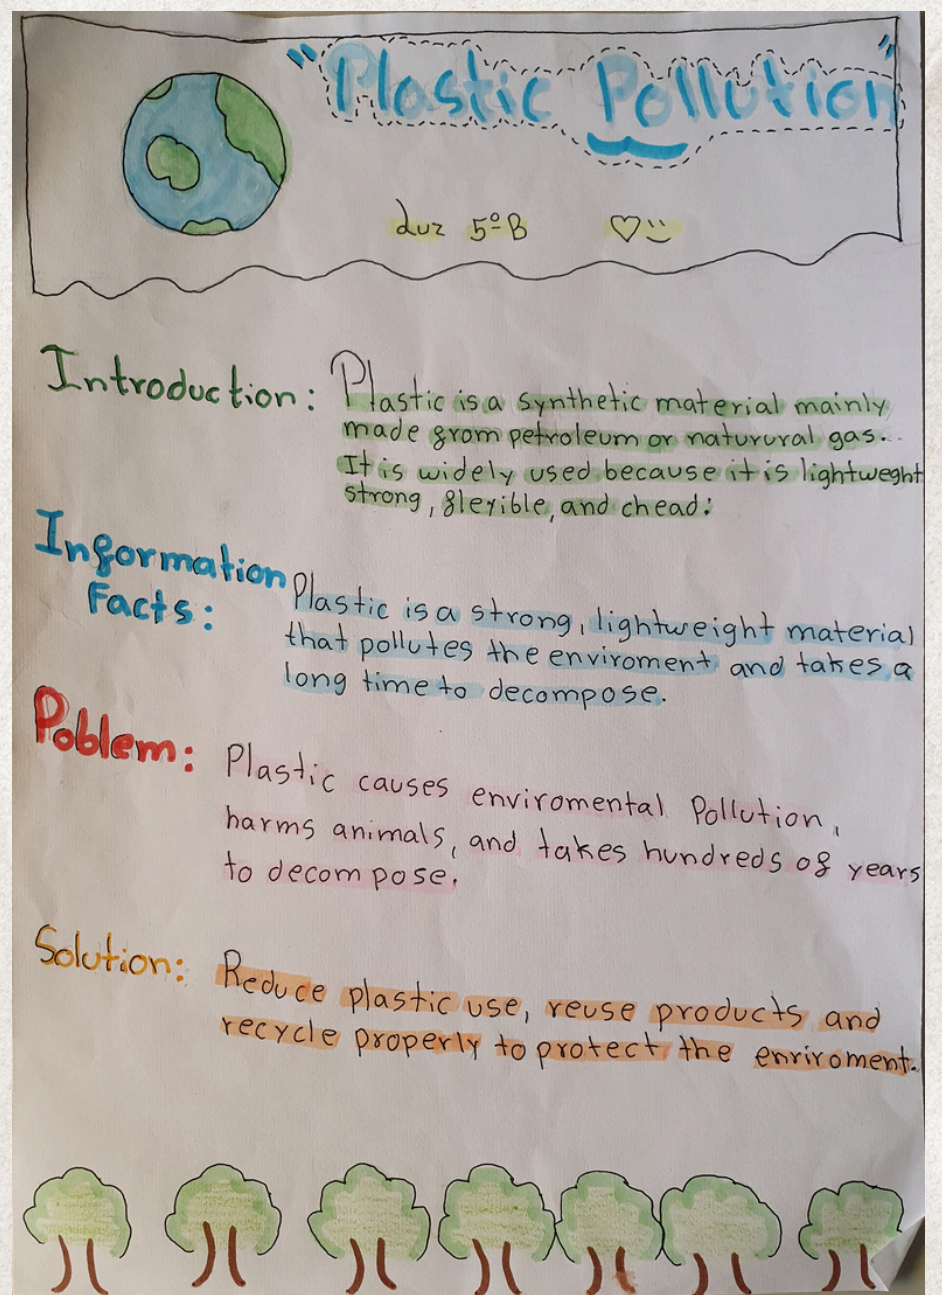 "Plastic Pollution"
Luz 5º B
Introduction: Plastic is a synthetic material mainly
made from petroleum or naturural gas.
It is widely used because it is lightweght
strong, flexible, and chead:
Information
Facts: Plastic is a strong, lightweight material
that pollutes the enviroment and takes a
long time to decompose.
Poblem: Plastic causes enviromental Pollution,
harms animals, and takes hundreds of years
to decompose.
Solution: Reduce plastic use, reuse products and
recycle properly to protect the enriroment.